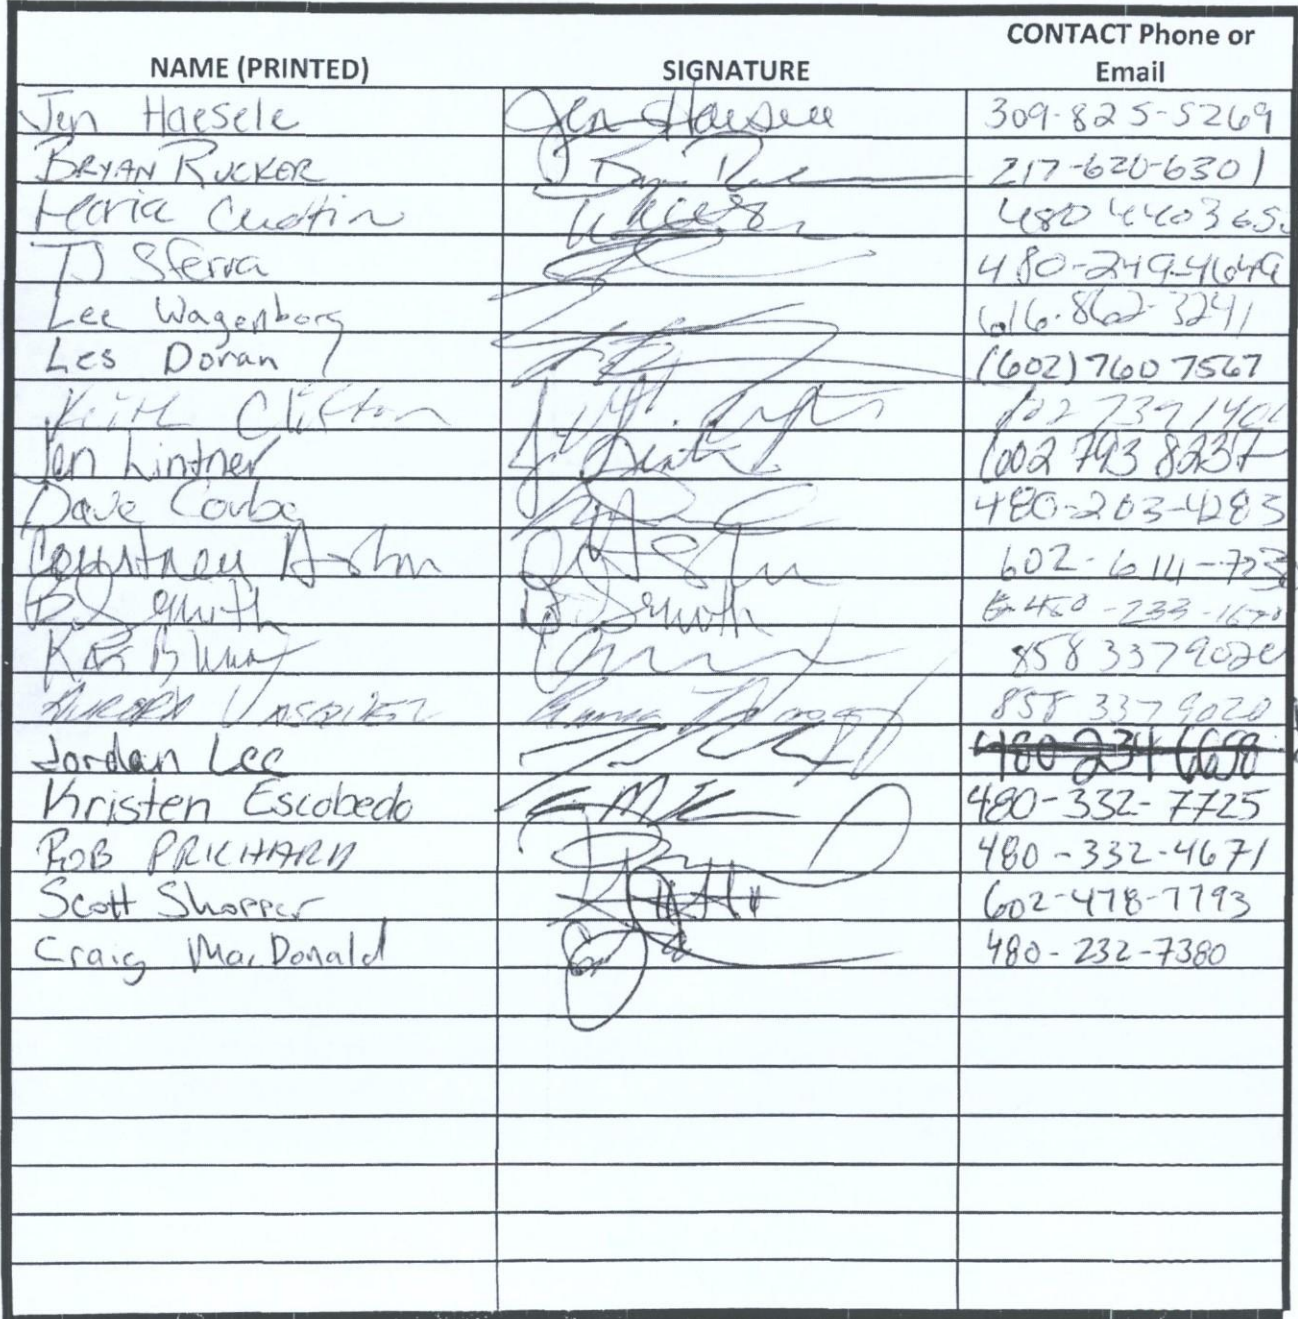 NAME (PRINTED) SIGNATURE CONTACT Phone or Email
Jen Haesele Jen Haesele 309-825-5269
BRYAN RUCKER 217-620-6301
Maria 480 440 365
TJ Sferra 480-249-4649
Lee Wagenborg 616-862-3241
Les Doran (602) 760 7567
Keith Clifton 602 739 140
Jen Lintner 602 793 8237
Dave 480-203-4283
Courtney 602-614-723
B Smith B Smith 480-233-16
858 337 9020
AURORA VASQUEZ 858 337 9020
Jordan Lee 480 234 6658
Kristen Escobedo 480-332-7725
ROB PRICHARD 480-332-4671
Scott Shopper 602-478-7793
Craig MacDonald 480-232-7380